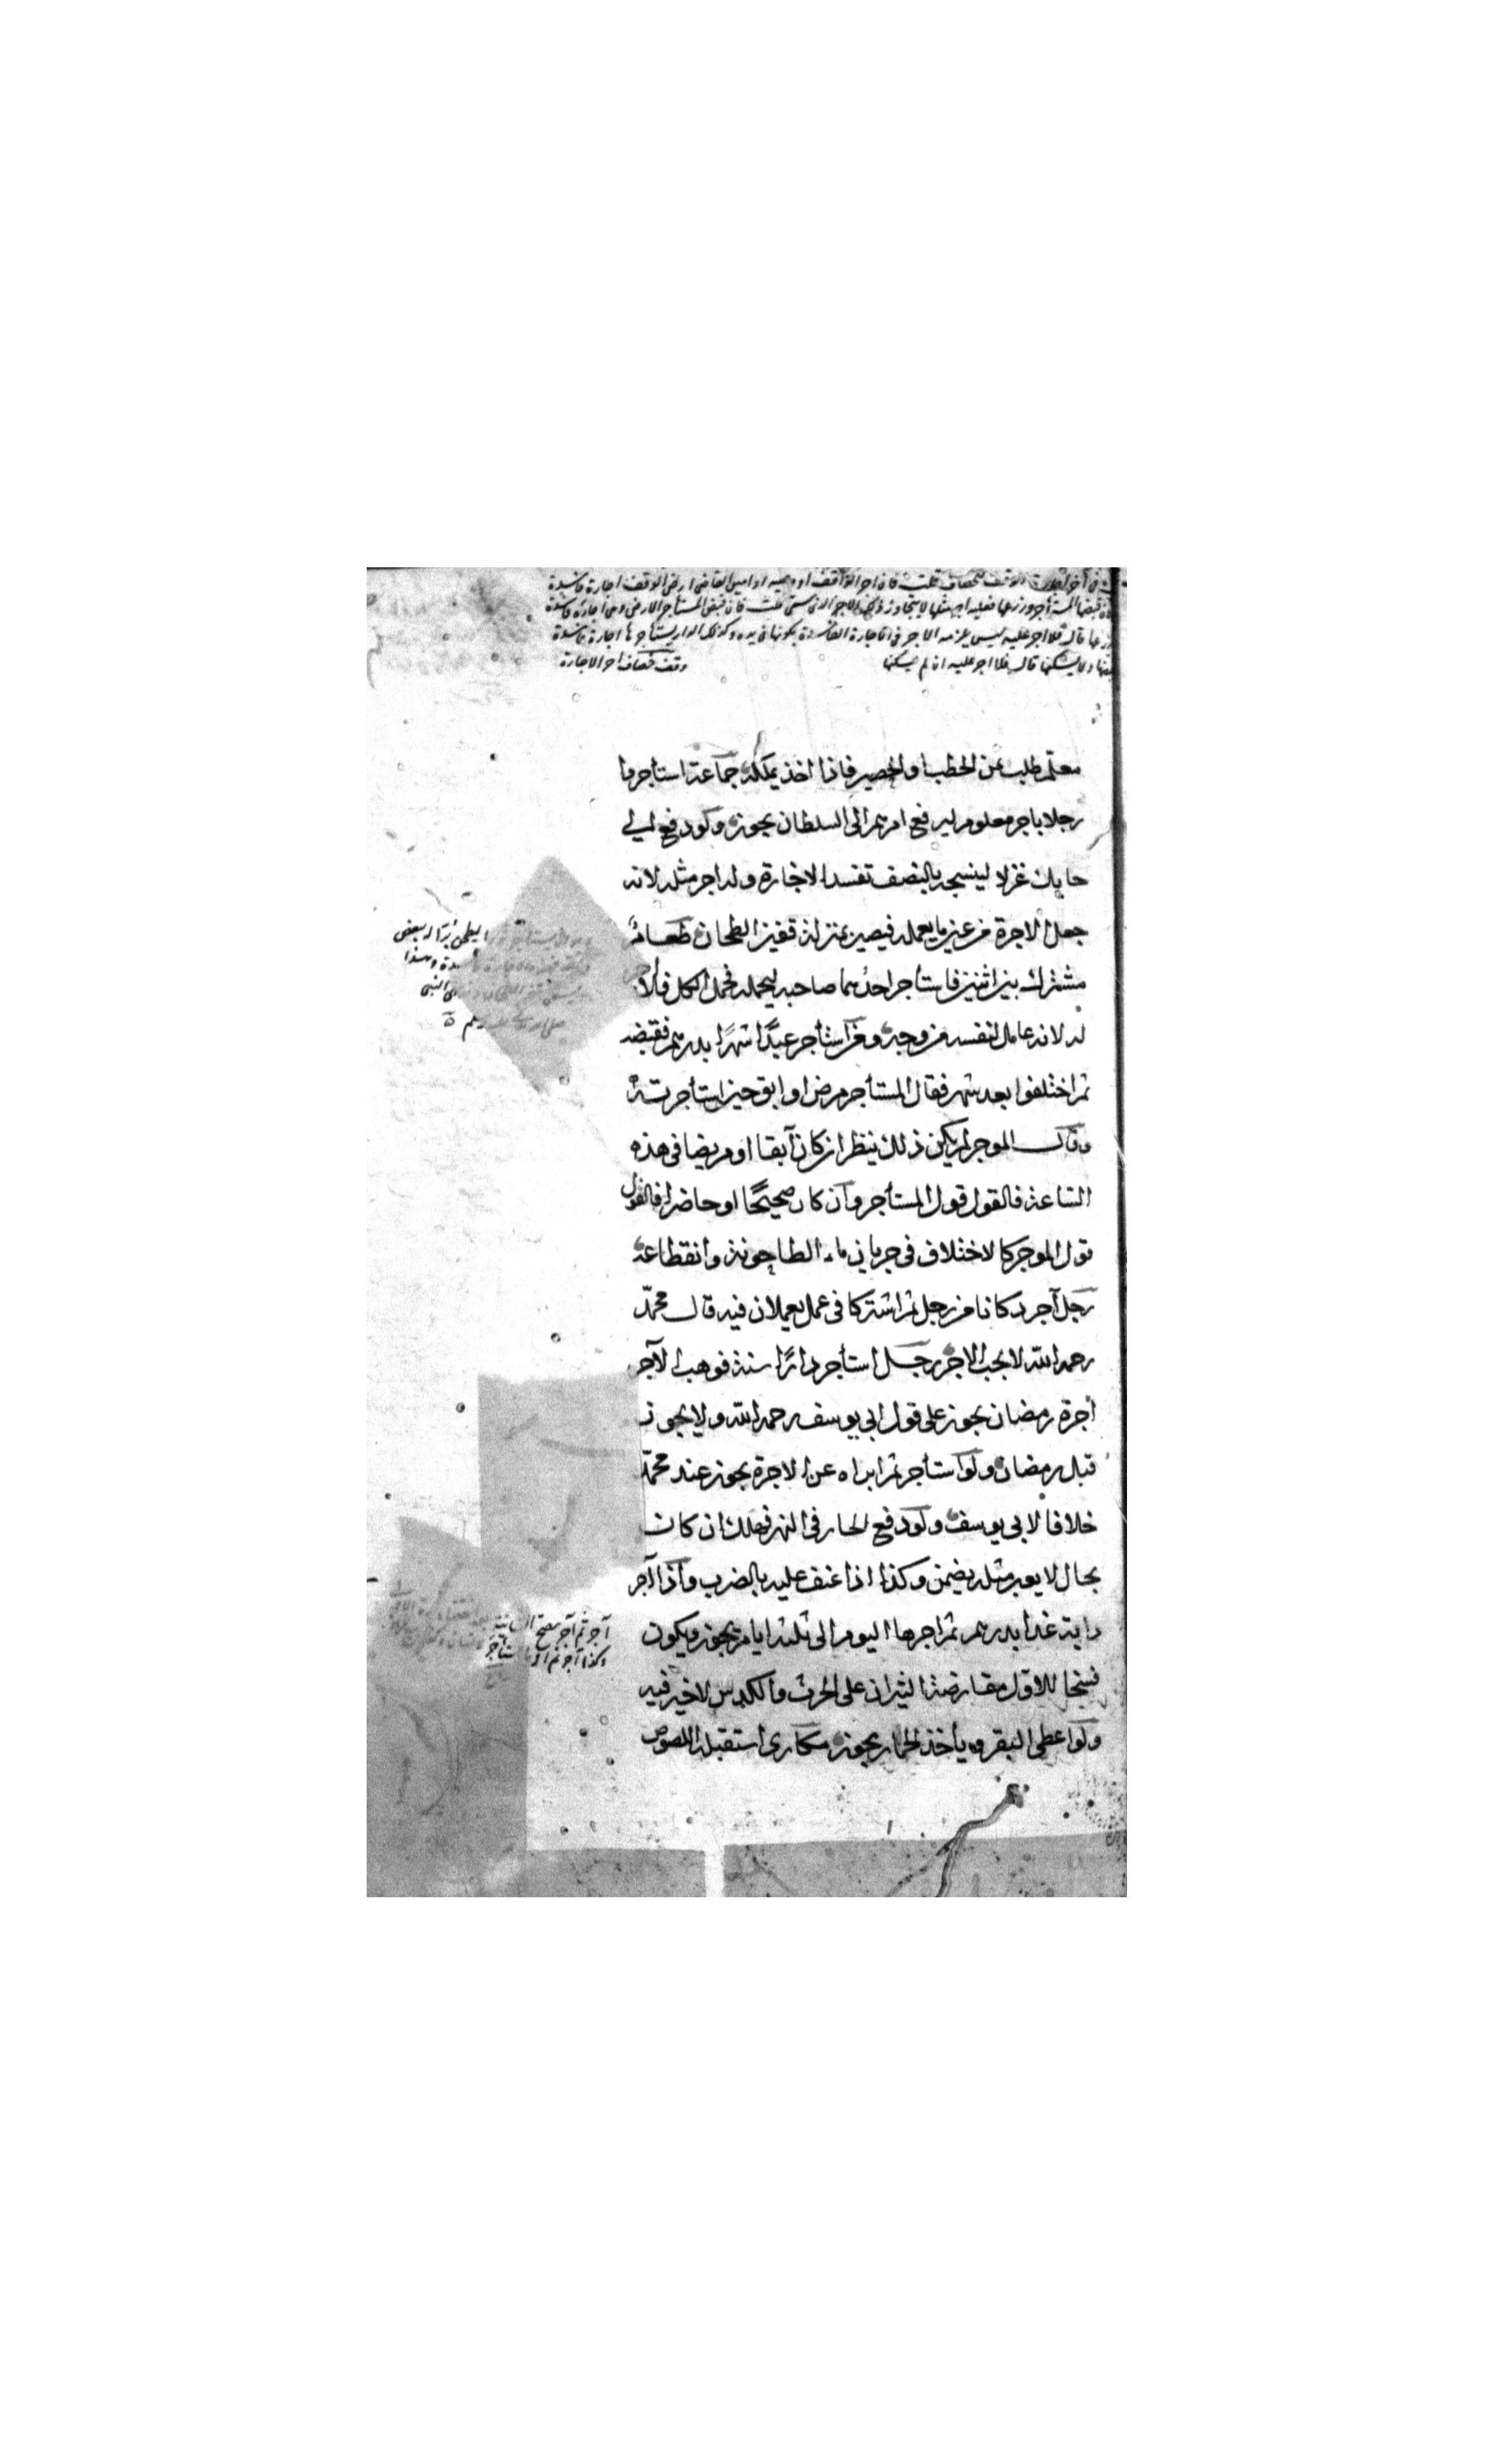 في آخر الوقف للخصاف قلت فان اجر الواقف او وصيه او امين القاضي ارض الوقف اجارة فاسدة
قبضها المستأجر وزرعها فعليه اجر مثلها لا يتجاوز ذلك الاجر الذي سمى قلت فان قبض المستأجر الارض وهي اجارة فاسدة
قال فلا اجر عليه ليس يلزمه الاجر في الاجارة الفاسدة بكونها في يده وكذلك الدار يستأجرها اجارة فاسدة
ولا يسكنها قال فلا اجر عليه ان لم يسكنها وقف خصاف اخر الاجارة
معلم طلب ثمن الحطب والحصير فاذا اخذ يملكه جماعة استأجروا
رجلا باجر معلوم ليرفع امرهم الى السلطان يجوز ولو دفع الى
حايك غزلا لينسجه بالنصف تفسد الاجارة وله اجر مثله لانه
جعل الاجرة من عين ما يعمله فيصير بمنزلة قفيز الطحان طعام
مشترك بين اثنين فاستأجر احدهما صاحبه ليحمله فحمل الكل فلا اجر
له لانه عامل لنفسه من وجه ومن استأجر عبدًا شهرًا بدرهم فقبضه
ثم اختلفوا بعد شهر فقال المستأجر مرض او ابق حين استأجرته
وقال الموجر لم يكن ذلك ينظر ان كان آبقا او مريضا في هذه
الساعة فالقول قول المستأجر وان كان صحيحًا او حاضرا فالقول
قول الموجر كالاختلاف في جريان ماء الطاحونة وانقطاعه
رجل آجر دكانا من رجل ثم اشتركا في عمل يعملان فيه قال محمّد
رحمه الله لا يجب الاجر رجل استأجر دارًا سنة فوهب الآجر
اجرة رمضان يجوز على قول ابي يوسف رحمه الله ولا يجوز
قبل رمضان ولو استأجر ثم ابراه عن الاجرة يجوز عند محمّد
خلافا لابي يوسف ولو دفع الحمار في النهر فهلك ان كان
بحال لا يعبر مثله يضمن وكذا اذا عنف عليه بالضرب واذا آجر
دابة غدا بدرهم ثم اجرها اليوم الى ثلثة ايام يجوز ويكون
فسخا للاول مقارضة الثيران على الحرث والكدس لا خير فيه
ولو اعطى البقر وياخذ الحمار يجوز مكاري استقبله اللصوص